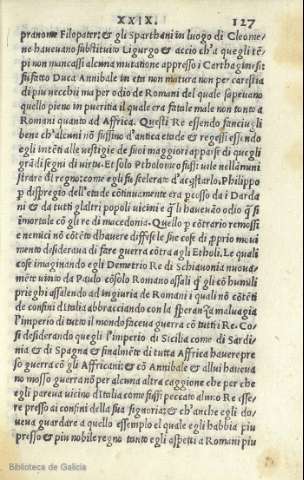 XXIX. 127
pranome Filopater: & gli Sparthani in luogo di Cleome-
no haueuano substituito Ligurgo & accio ch'a quegli tē-
pi non mancassi alcuna mutatione appresso i Carthaginesi
su fatto Duca Annibale in eta non matura non per carestia
di piu uecchi ma per odio de Romani del quale sapeuano
quello pieno in pueritia il quale era fatale male non tanto a
Romani quanto ad Affrica. Questi Re essendo fanciugli
bene ch'alcuni nō fussino d'antica etade & regessi essendo
egli intēti alle uestigie de suoi maggiori apparse di quegli
grā di segni di uirtu. Et solo Ptholomeo fussi uile nell'amini
strare di regno: come egli fu scelerato d'acqstarlo. Philippo
p dispregio dell'etade cōtinuamēte era pcosso da i Darda
ni & da tutti gl'altri popoli uicini e q̄li haueuāo odio q̄si
imortale cō gli re di macedonia. Quello p cōtrario remossi
e nemici nō cōtēto d'hauere difuse le sue cose di p̄prio moui
mento desideraua di fare guerra cōtra agli Etholi. Le quali
cose imaginando egli Demetrio Re di Schiauonia nuoua-
mēte uinto da Paulo cōsolo Romano assali q̄l gli cō humili
prieghi assallendo ad ingiuria de Romani i quali nō cōtēti
de confini d'Italia abbracciando con la speranza maluagia
l'imperio di tutto il mondo faceua guerra cō tutti i Re. Co-
si desiderando quegli l'imperio di Sicilia come di Sardi-
nia & di Spagna & finalmēte di tutta Affrica hauere pre
so guerra cō gli Affricani: & cō Annibale & allui haueua
no mosso guerra nō per alcuna altra caggione che per che
egli pareua uicino d'Italia come fussi peccato alcuno Re esse-
re presso ai confini della sua signoria: & ch'anche egli do-
ueua guardare a quello essempio el quale egli habbia piu
presso & piu nobile regno tanto egli aspetti a Romani piu
Biblioteca de Galicia